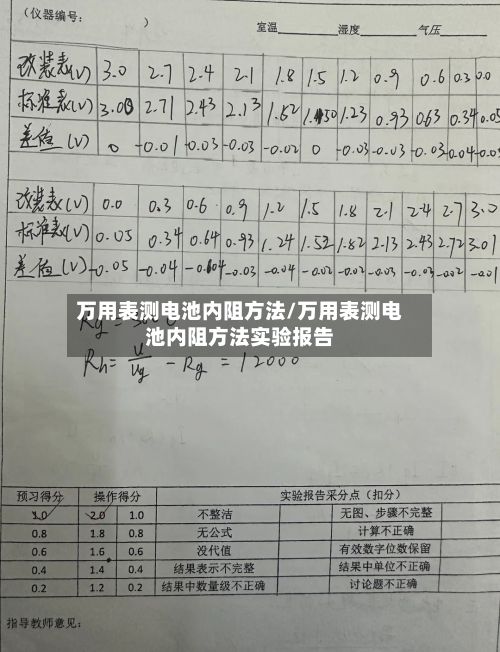 （仪器编号： ）
室温 湿度 气压
改装表(V) 3.0 2.7 2.4 2.1 1.8 1.5 1.2 0.9 0.6 0.3 0.0
标准表(V) 3.00 2.71 2.43 2.13 1.82 1.50 1.23 0.93 0.63 0.34 0.05
差值(V) 0 -0.01 -0.03 -0.03 -0.02 0 -0.03 -0.03 -0.03 -0.04 -0.05
改装表(V) 0.0 0.3 0.6 0.9 1.2 1.5 1.8 2.1 2.4 2.7 3.0
标准表(V) 0.05 0.34 0.64 0.93 1.24 1.52 1.82 2.13 2.43 2.72 3.01
差值(V) -0.05 -0.04 -0.04 -0.03 -0.04 -0.02 -0.02 -0.03 -0.03 -0.02 -0.01
万用表测电池内阻方法/万用表测电
池内阻方法实验报告
Rg =
Rh = U/Ug - Rg = 12000
预习得分 操作得分 实验报告采分点（扣分）
1.0 2.0 1.0 不整洁 无图、步骤不完整
0.8 1.8 0.8 无公式 计算不正确
0.6 1.6 0.6 没代值 有效数字位数保留
0.4 1.4 0.4 结果表示不完整 结果中单位不正确
0.2 1.2 0.2 结果中数量级不正确 讨论题不正确
指导教师意见：